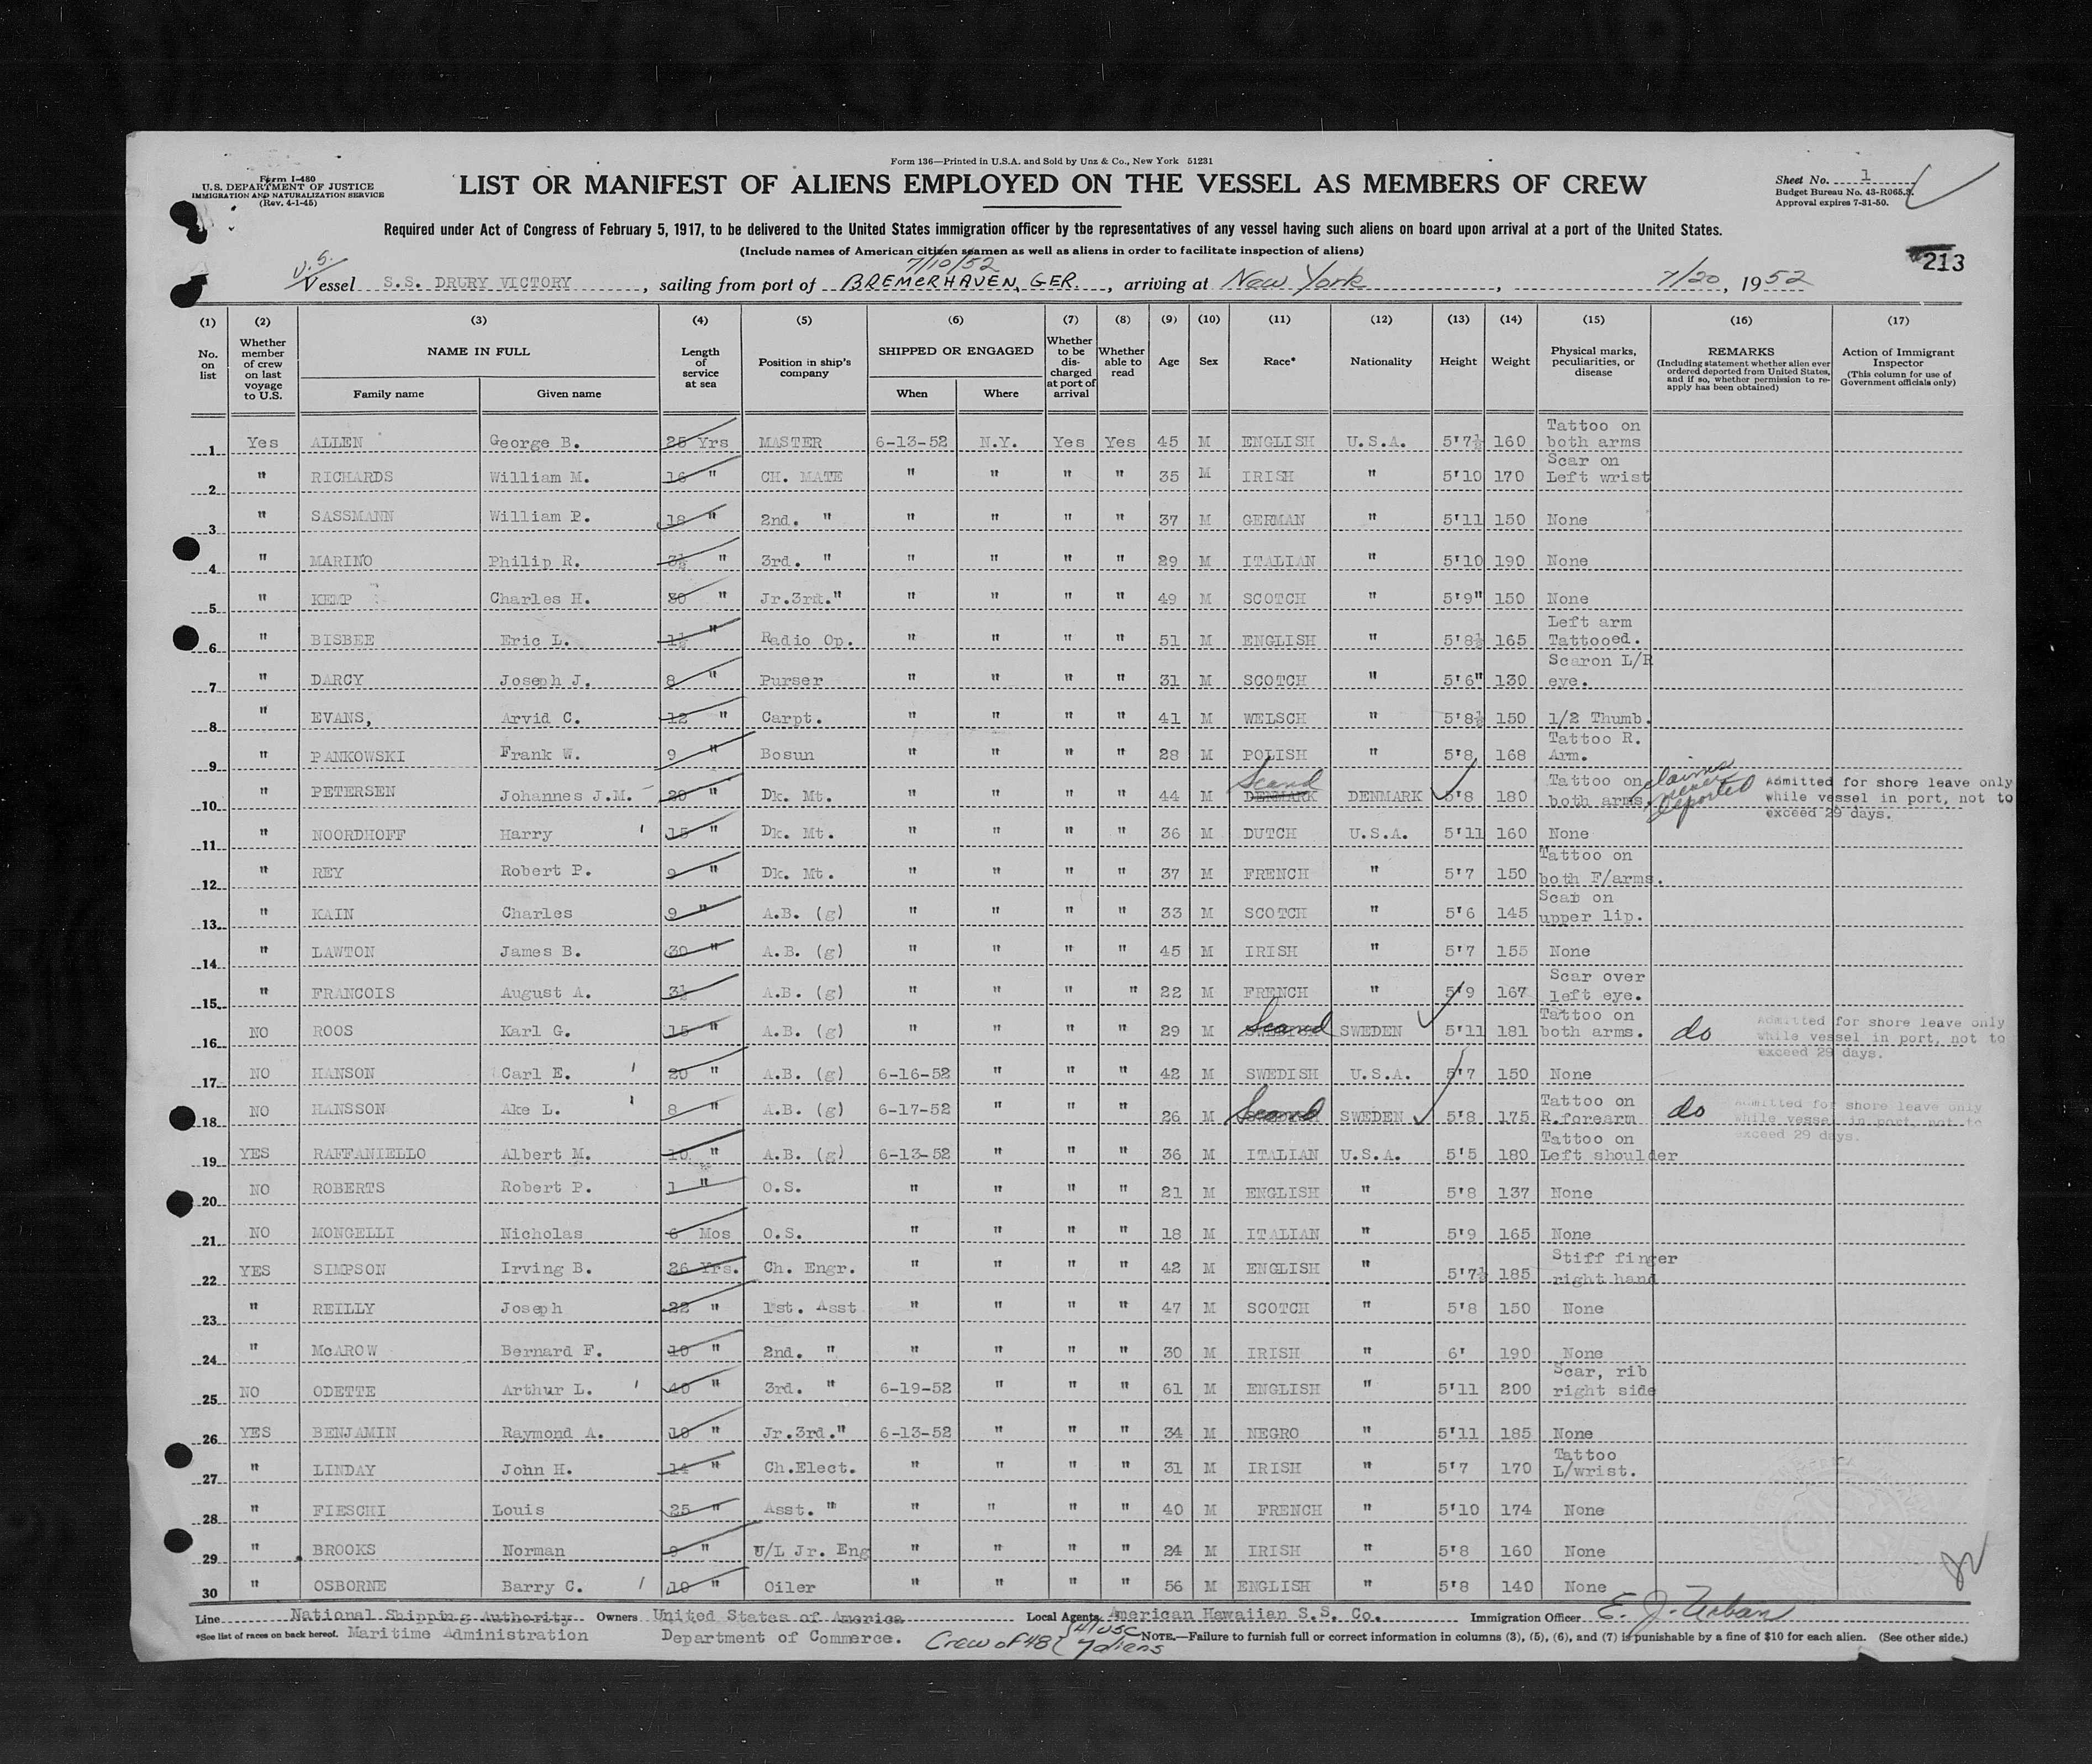 Form 136—Printed in U.S.A. and Sold by Unz & Co., New York 51231
Form I-480
U.S. DEPARTMENT OF JUSTICE
IMMIGRATION AND NATURALIZATION SERVICE
(Rev. 4-1-45)
LIST OR MANIFEST OF ALIENS EMPLOYED ON THE VESSEL AS MEMBERS OF CREW
Sheet No. 1
Budget Bureau No. 43-R065.3.
Approval expires 7-31-50.
Required under Act of Congress of February 5, 1917, to be delivered to the United States immigration officer by the representatives of any vessel having such aliens on board upon arrival at a port of the United States.
(Include names of American citizen seamen as well as aliens in order to facilitate inspection of aliens)
213
U.S. 7/10/52
Vessel S.S. DRURY VICTORY, sailing from port of BREMERHAVEN, GER., arriving at New York, 7/20, 1952
(1) (2) (3) (4) (5) (6) (7) (8) (9) (10) (11) (12) (13) (14) (15) (16) (17)
No. on list | Whether member of crew on last voyage to U.S. | NAME IN FULL Family name Given name | Length of service at sea | Position in ship's company | SHIPPED OR ENGAGED When Where | Whether to be discharged at port of arrival | Whether able to read | Age | Sex | Race* | Nationality | Height | Weight | Physical marks, peculiarities, or disease | REMARKS (Including statement whether alien ever ordered deported from United States, and if so, whether permission to re-apply has been obtained) | Action of Immigrant Inspector (This column for use of Government officials only)
1 Yes ALLEN George B. 25 Yrs MASTER 6-13-52 N.Y. Yes Yes 45 M ENGLISH U.S.A. 5'7½ 160 Tattoo on both arms
2 " RICHARDS William M. 16 " CH. MATE " " " " 35 M IRISH " 5'10 170 Scar on Left wrist
3 " SASSMANN William P. 18 " 2nd. " " " " " 37 M GERMAN " 5'11 150 None
4 " MARINO Philip R. 3½ " 3rd. " " " " " 29 M ITALIAN " 5'10 190 None
5 " KEMP Charles H. 30 " Jr.3rd." " " " " 49 M SCOTCH " 5'9" 150 None
6 " BISBEE Eric L. 1½ " Radio Op. " " " " 51 M ENGLISH " 5'8½ 165 Left arm Tattooed.
7 " DARCY Joseph J. 8 " Purser " " " " 31 M SCOTCH " 5'6" 130 Scaron L/R eye.
8 " EVANS, Arvid C. 12 " Carpt. " " " " 41 M WELSCH " 5'8½ 150 1/2 Thumb.
9 " PANKOWSKI Frank W. 9 " Bosun " " " " 28 M POLISH " 5'8 168 Tattoo R. Arm.
10 " PETERSEN Johannes J.M. 20 " Dk. Mt. " " " " 44 M DENMARK Scand DENMARK 5'8 180 Tattoo on both arms. claims never deported Admitted for shore leave only while vessel in port, not to exceed 29 days.
11 " NOORDHOFF Harry 15 " Dk. Mt. " " " " 36 M DUTCH U.S.A. 5'11 160 None
12 " REY Robert P. 9 " Dk. Mt. " " " " 37 M FRENCH " 5'7 150 Tattoo on both F/arms.
13 " KAIN Charles 9 " A.B. (g) " " " " 33 M SCOTCH " 5'6 145 Scar on upper lip.
14 " LAWTON James B. 30 " A.B. (g) " " " " 45 M IRISH " 5'7 155 None
15 " FRANCOIS August A. 3½ A.B. (g) " " " " 22 M FRENCH " 5'9 167 Scar over left eye.
16 NO ROOS Karl G. 15 " A.B. (g) " " " " 29 M Scand SWEDEN 5'11 181 Tattoo on both arms. do Admitted for shore leave only while vessel in port, not to exceed 29 days.
17 NO HANSON Carl E. 20 " A.B. (g) 6-16-52 " " " 42 M SWEDISH U.S.A. 5'7 150 None
18 NO HANSSON Ake L. 8 " A.B. (g) 6-17-52 " " " 26 M Scand SWEDEN 5'8 175 Tattoo on R.forearm do Admitted for shore leave only while vessel in port, not to exceed 29 days.
19 YES RAFFANIELLO Albert M. 10 " A.B. (g) 6-13-52 " " " 36 M ITALIAN U.S.A. 5'5 180 Tattoo on Left shoulder
20 NO ROBERTS Robert P. 1 " O.S. " " " " 21 M ENGLISH " 5'8 137 None
21 NO MONGELLI Nicholas 6 Mos O.S. " " " " 18 M ITALIAN " 5'9 165 None
22 YES SIMPSON Irving B. 26 Yrs. Ch. Engr. " " " " 42 M ENGLISH " 5'7½ 185 Stiff finger right hand
23 " REILLY Joseph 22 " 1st. Asst " " " " 47 M SCOTCH " 5'8 150 None
24 " McAROW Bernard F. 10 " 2nd. " " " " " 30 M IRISH " 6' 190 None
25 NO ODETTE Arthur L. 40 " 3rd. " 6-19-52 " " " 61 M ENGLISH " 5'11 200 Scar, rib right side
26 YES BENJAMIN Raymond A. 10 " Jr.3rd." 6-13-52 " " " 34 M NEGRO " 5'11 185 None
27 " LINDAY John H. 14 " Ch.Elect. " " " " 31 M IRISH " 5'7 170 Tattoo L/wrist.
28 " FIESCHI Louis 25 " Asst. " " " " " 40 M FRENCH " 5'10 174 None
29 " BROOKS Norman 9 " U/L Jr. Eng " " " " 24 M IRISH " 5'8 160 None
30 " OSBORNE Barry C. 10 " Oiler " " " " 56 M ENGLISH " 5'8 140 None
Line National Shipping Authority Owners United States of America Local Agents American Hawaiian S.S. Co. Immigration Officer E. J. Urban
*See list of races on back hereof. Maritime Administration Department of Commerce. Crew of 48 41 USC 7 aliens NOTE.—Failure to furnish full or correct information in columns (3), (5), (6), and (7) is punishable by a fine of $10 for each alien. (See other side.)